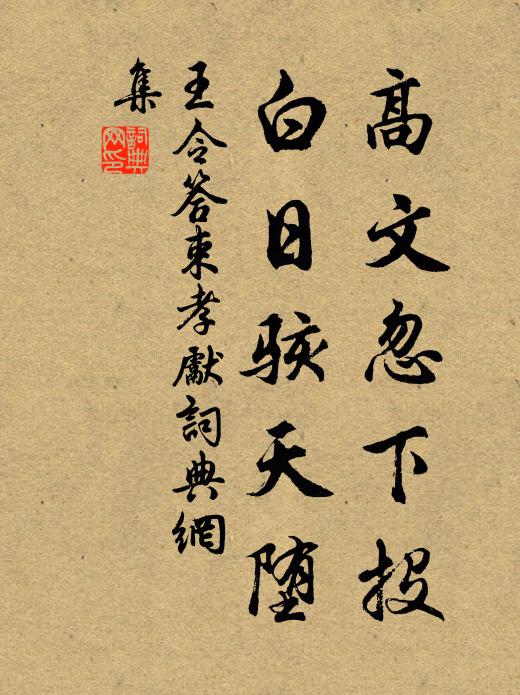 高文忽下投
白日駭天堕
王令答束孝獻詞典網
集
詞典
网印